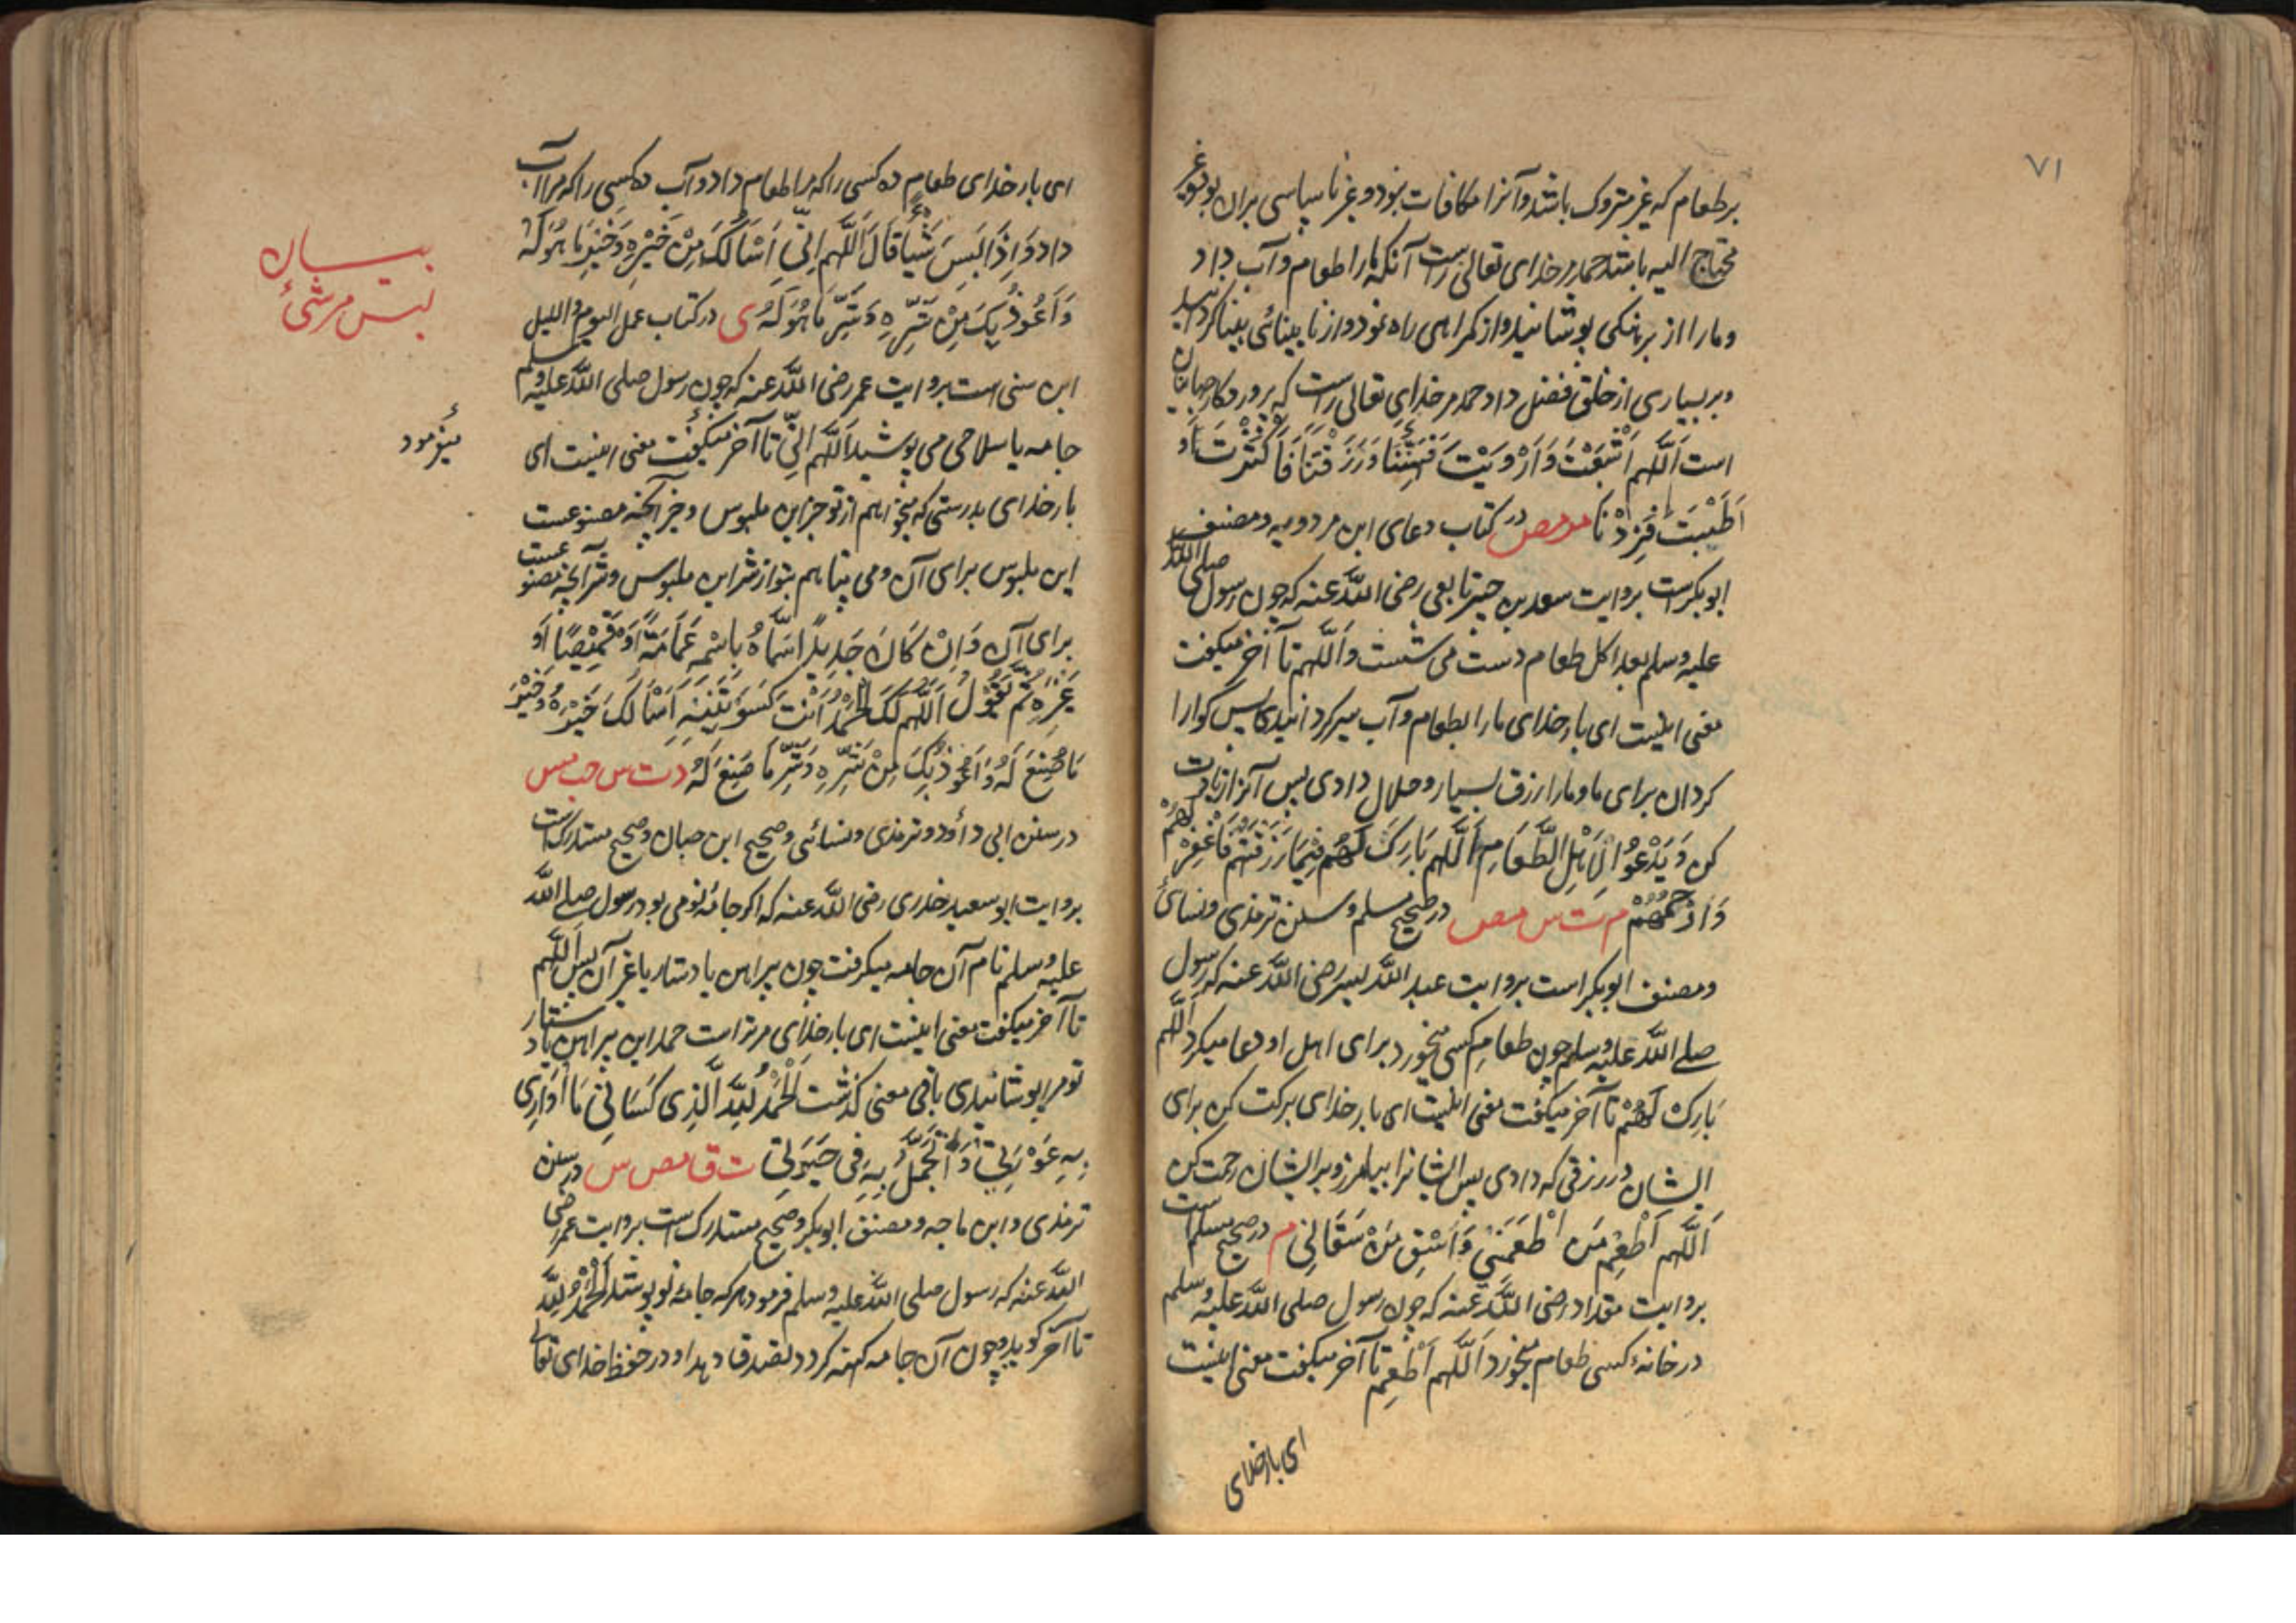 ۷۱
بر طعام که غیر متروک باشد و آنرا مکافات نبود و غیر ناسپاسی بران بود و غیر
محتاج الیه باشد حمد مر خدای تعالی راست آنکه مارا طعام و آب داد
و مارا از برهنکی پوشانید و از کمراهی راه نمود و از نابینائی بینا کردانید
و بر بسیاری از خلق فضل داد حمد مر خدای تعالی راست که پروردکار جهانیان
است اَللّٰهم اَشْبَعْتَ وَ اَرْوَیْتَ فَهَنِّئْنَا وَ رَزَقْتَنَا فَاَکْثَرْتَ وَ
اَطَیْبَتَ فَزِدْنَا مو مص در کتاب دعای ابن مردویه و مصنف
ابوبکرست بروایت سعد بن جبیر تابعی رضی اللّٰه عنه که چون رسول صلی اللّٰه
علیه و سلم بعد اکل طعام دست می شست و اَللّٰهم تا آخر میکفت
معنی اینست ای بار خدای ما را بطعام و آب سیر کردانیدی پس کوارا
کردان برای ما و مارا رزق بسیار و حلال دادی پس آنرا زیادت
کن وَ یَدْعُوْا لِاَهْلِ الطَّعَامِ اَللّٰهم بَارِکْ لَهُمْ فِیْمَا رَزَقْتَهُمْ فَاغْفِرْ لَهُمْ
وَ ارْحَمْهُمْ م ت س مص در صحیح مسلم و سنن ترمذی و نسائی
و مصنف ابوبکر است بروایت عبد اللّٰه بسر رضی اللّٰه عنه که رسول
صلے اللّٰه علیه و سلم چون طعام کسی میخورد برای اهل او دعا میکرد اَللّٰهم
بَارِک لَهُمْ تا آخر میکفت معنی اینست ای بار خدای برکت کن برای
ایشان در رزقی که دادی پس ایشانرا بیامرز و بر ایشان رحمت کن
اَللّٰهم اَطْعِمْ مَن اَطْعَمَنِیْ وَ اسْقِ مَنْ سَقَانِی م در صحیح مسلم است
بروایت مقداد رضی اللّٰه عنه که چون رسول صلی اللّٰه علیه و سلم
در خانهٔ کسی طعام میخورد اَللّٰهم اَطْعِمْ تا آخر میکفت معنی اینست
ای بار خدای
ای بار خدای طعام ده کسی را که مرا طعام داد و آب ده کسی را که مرا آب
داد وَ اِذَا لَبِسَ شَیْئًا قَالَ اَللّٰهم اِنِّی اَسْاَلُکَ مِنْ خَیْرِهٖ وَ خَیْرِ مَا هُوَ لَهٗ
وَ اَعُوْذُ بِکَ مِنْ شَرِّهٖ وَ شَرِّ مَا هُوَ لَهٗ ی در کتاب عمل الیوم و اللیل
ابن سنی است بروایت عمر رضی اللّٰه عنه که چون رسول صلی اللّٰه علیه و سلم
جامه یا سلاحی می پوشید اَللّٰهم اِنِّی تا آخر میکفت معنی اینست ای
بار خدای بدرستی که میخواهم از تو خیر این ملبوس و خیر آنچه مصنوعست
این ملبوس برای آن و می پناهم بتو از شر این ملبوس و شر آنچه مصنوعست
برای آن وَ اِنْ کَانَ جَدِیْدًا سَمَّاهُ بِاسْمِهٖ عَمَامَةً اَوْ قَمِیْصًا اَوْ
غَیْرِهٖ ثُمَّ یَقُوْلُ اَللّٰهم لَکَ الْحَمْدُ اَنْتَ کَسَوْتَنِیْهِ اَسْاَلُکَ خَیْرَهٗ وَ خَیْرَ
مَا صُنِعَ لَهٗ وَ اَعُوْذُ بِکَ مِنْ شَرِّهٖ وَ شَرِّ مَا صُنِعَ لَهٗ د ت س حب مس
در سنن ابی داؤد و ترمذی و نسائی و صحیح ابن حبان و صحیح مستدرک است
بروایت ابو سعید خدری رضی اللّٰه عنه که اکر جامهٔ نو می بود رسول صلے اللّٰه
علیه و سلم نام آن جامه میکرفت چون پیراهن یا دستار یا غیر آن پس اَللّٰهم
تا آخر میکفت معنی اینست ای بار خدای مر تراست حمد این پیراهن یا دستار
تو مرا پوشانیدی باقی معنی کذشت اَلْحَمْدُ لِلّٰه الَّذِی کَسَانِیْ مَا اُوَارِی
بِهٖ عَوْرَتِیْ وَ اَتَجَمَّلُ بِهٖ فِی حَیٰوتِی ت ق مص مس در سنن
ترمذی و ابن ماجه و مصنف ابوبکر و صحیح مستدرک است بروایت عمر رضی
اللّٰه عنه که رسول صلی اللّٰه علیه و سلم فرمود هر که جامهٔ نو پوشد اَلْحَمْدُ لِلّٰه
تا آخر کوید و چون آن جامه کهنه کردد بصدقه دهد او در حفظ خدای تعالی
بیان
لبس هر شئ
میفرمود